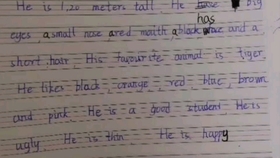 He is 1,20 meters tall He has big
eyes, a small nose a red mouth a black and a
short hair His favourite animal is tiger.
He likes black, orange, red blue, brown
and pink. He is a good student He is
ugly. He is thin. He is happy